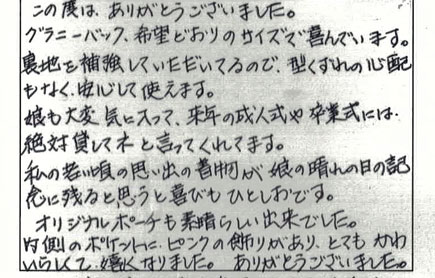 この度は、ありがとうございました。
グラニーバック、希望どおりのサイズで喜んでいます。
裏地を補強していただいてるので、型くずれの心配
もなく、安心して使えます。
娘も大変気に入って、来年の成人式や卒業式には
絶対貸してネと言ってくれてます。
私の若い頃の思い出の着物が娘の晴れの日の記
念に残ると思うと喜びもひとしおです。
オリジナルポーチも素晴らしい出来でした。
内側のポケットに、ピンクの飾りがあり、とてもかわ
いらしくて、嬉くなりました。ありがとうございました。